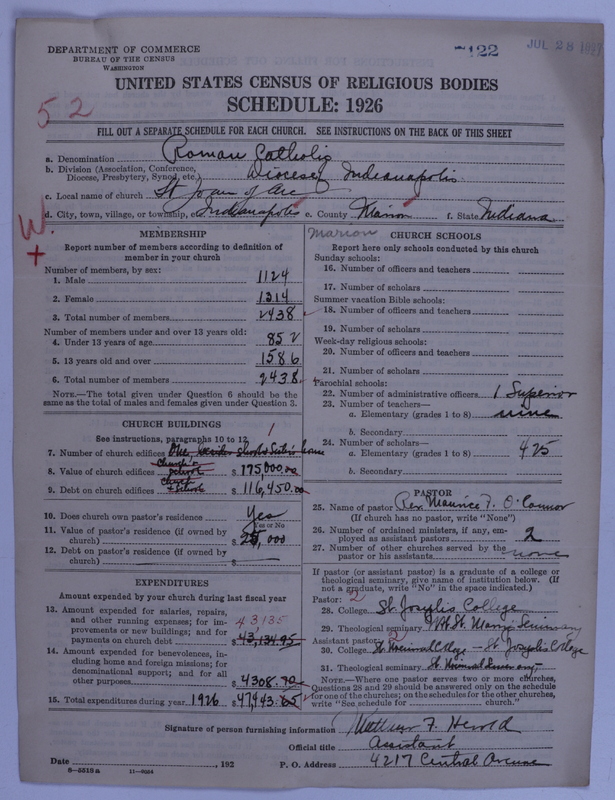 DEPARTMENT OF COMMERCE
BUREAU OF THE CENSUS
WASHINGTON
122
JUL 28
UNITED STATES CENSUS OF RELIGIOUS BODIES
SCHEDULE: 1926
52
FILL OUT A SEPARATE SCHEDULE FOR EACH CHURCH. SEE INSTRUCTIONS ON THE BACK OF THIS SHEET
a. Denomination Roman Catholic
b. Division (Association, Conference, Diocese, Presbytery, Synod, etc.) Diocese, Indianapolis
c. Local name of church St Joan of Arc
d. City, town, village, or township, Indianapolis e. County Marion f. State Indiana
Marion
W.
+
MEMBERSHIP
Report number of members according to definition of
member in your church
Number of members, by sex:
1. Male 1124
2. Female 1314
3. Total number of members 2438
Number of members under and over 13 years old:
4. Under 13 years of age 852
5. 13 years old and over 1586
6. Total number of members 2438
NOTE.—The total given under Question 6 should be the
same as the total of males and females given under Question 3.
CHURCH BUILDINGS
See instructions, paragraphs 10 to 12
1
7. Number of church edifices One,
Church &
8. Value of church edifices school $ 175,000.00
Church
9. Debt on church edifices + School $ 116,450.00
10. Does church own pastor's residence Yes
Yes or No
11. Value of pastor's residence (if owned by
church) $ 25,000
12. Debt on pastor's residence (if owned by
church) $
EXPENDITURES
Amount expended by your church during last fiscal year
13. Amount expended for salaries, repairs,
and other running expenses; for im- 43,135
provements or new buildings; and for
payments on church debt $ 43,134.95
14. Amount expended for benevolences, in-
cluding home and foreign missions; for
denominational support; and for all
other purposes $ 4308.70
15. Total expenditures during year 1926 $ 47443.65
CHURCH SCHOOLS
Report here only schools conducted by this church
Sunday schools:
16. Number of officers and teachers
17. Number of scholars
Summer vacation Bible schools:
18. Number of officers and teachers
19. Number of scholars
Week-day religious schools:
20. Number of officers and teachers
21. Number of scholars
Parochial schools:
22. Number of administrative officers 1 Superior
23. Number of teachers—
a. Elementary (grades 1 to 8) nine
b. Secondary
24. Number of scholars—
a. Elementary (grades 1 to 8) 425
b. Secondary
PASTOR
25. Name of pastor Rev. Maurice F. O'Connor
(If church has no pastor, write "None")
26. Number of ordained ministers, if any, em-
ployed as assistant pastors 2
27. Number of other churches served by the
pastor or his assistants none
If pastor (or assistant pastor) is a graduate of a college or
theological seminary, give name of institution below. (If
not a graduate, write "No" in the space indicated.)
Pastor: 2
28. College St. Josephs College
29. Theological seminary Mt. St. Marys Seminary
Assistant pastor: 2
30. College St. Meinrad College — St. Josephs College
31. Theological seminary St. Meinrad Seminary
NOTE.—Where one pastor serves two or more churches,
Questions 28 and 29 should be answered only on the schedule
for one of the churches; on the schedules for the other churches,
write "See schedule for church."
Signature of person furnishing information Matthew F. Herold
Official title Assistant
Date , 192 P. O. Address 4217 Central Avenue
8—5518a 11—9004